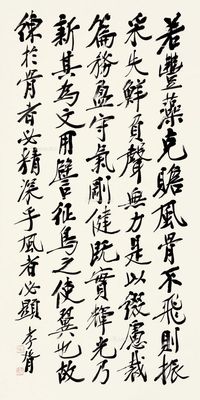 若豐藻克贍風骨不飛則振
采失鮮負聲無力是以綴慮裁
篇務盈守氣剛健既實輝光乃
新其為文用譬征鳥之使翼也故
練於骨者必精深乎風者必顯 李